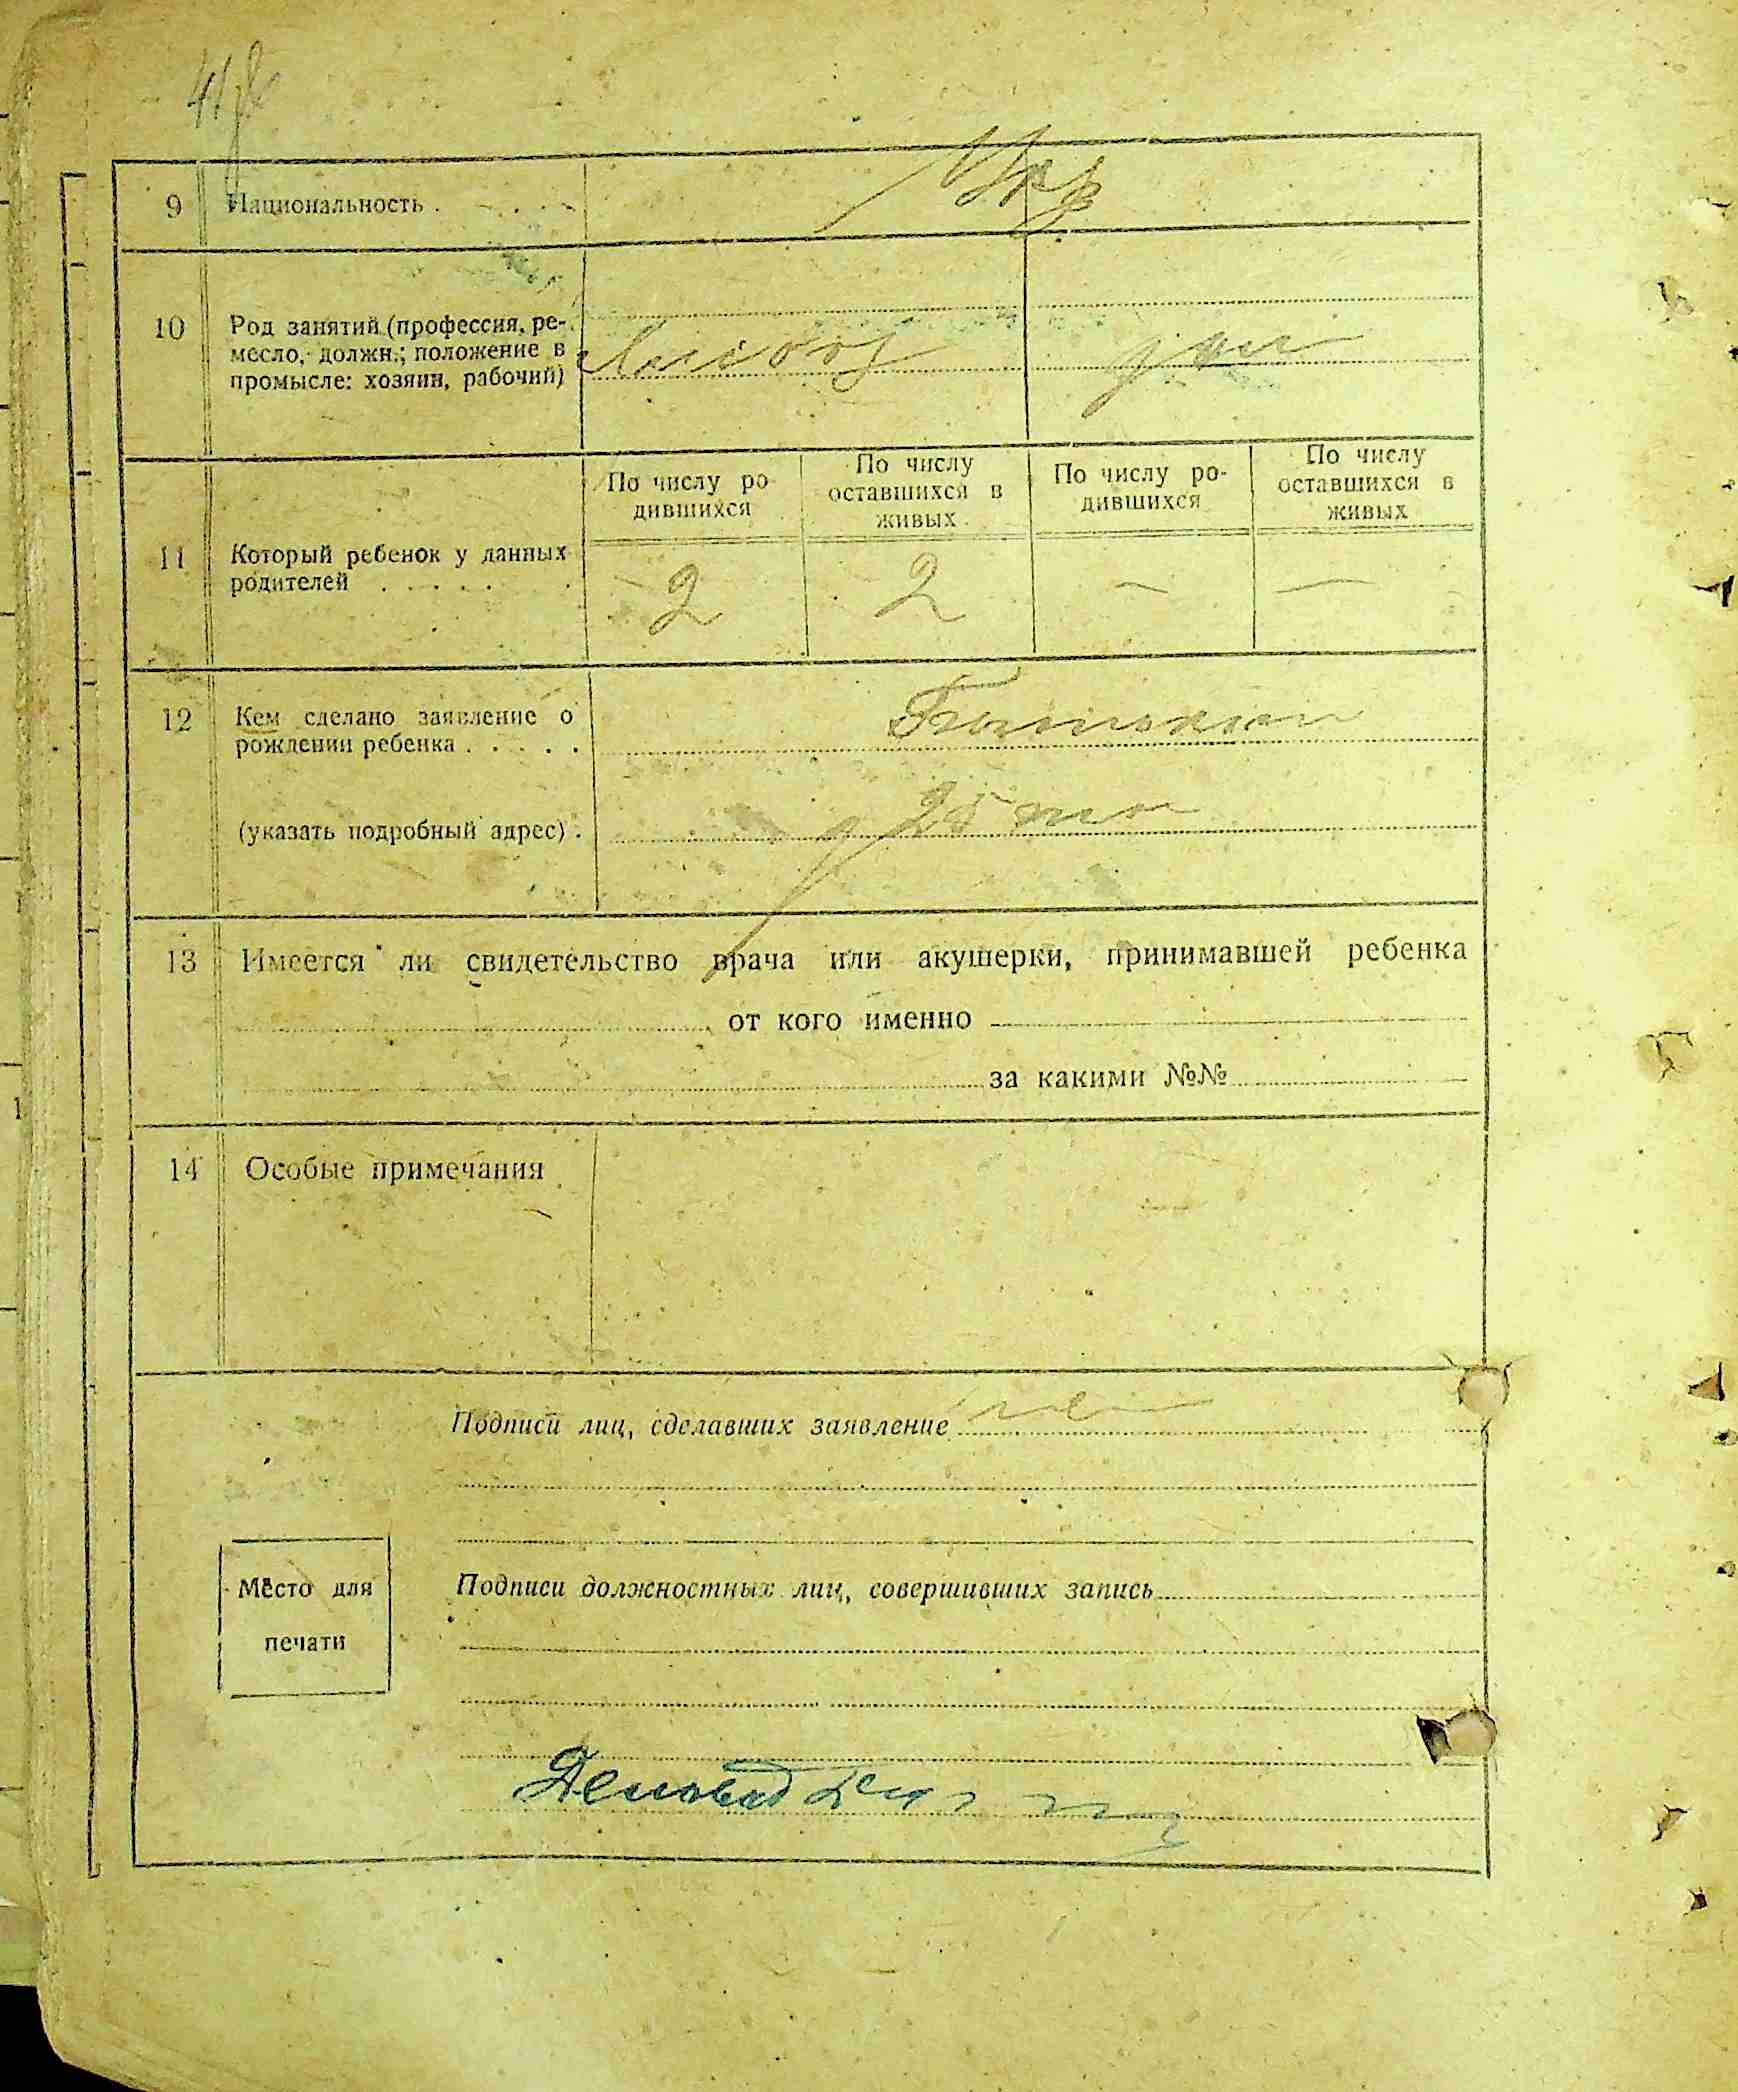 9 Национальность . - . . -
Укр
10 Род занятий (профессия, ре-
месло, должн.; положение в
промысле: хозяин, рабочий)
По числу ро-
дившихся
По числу
оставшихся в
живых
По числу ро-
дившихся
По числу
оставшихся в
живых
11 Который ребенок у данных
родителей . . . . . .
2 2 — —
12 Кем сделано заявление о
рождении ребенка . . . . .
(указать подробный адрес) .
13 Имеется ли свидетельство врача или акушерки, принимавшей ребенка
от кого именно
за какими №№
14 Особые примечания
Подписи лиц, сделавших заявление
Место для
печати
Подписи должностных лиц, совершивших запись